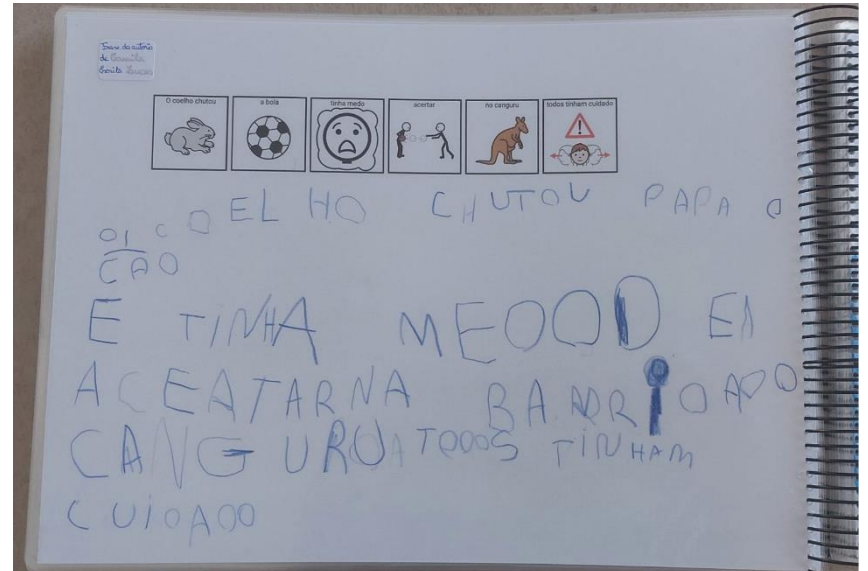 Frase da autoria
de Camila
Escrita
O coelho chutou a bola tinha medo acertar no canguru todos tinham cuidado
O COELHO CHUTOU PAPA O
CAO
E TINHA MEOOD
ACEATARNA
CANGURU TODOS TINHAM
CUIOAOO